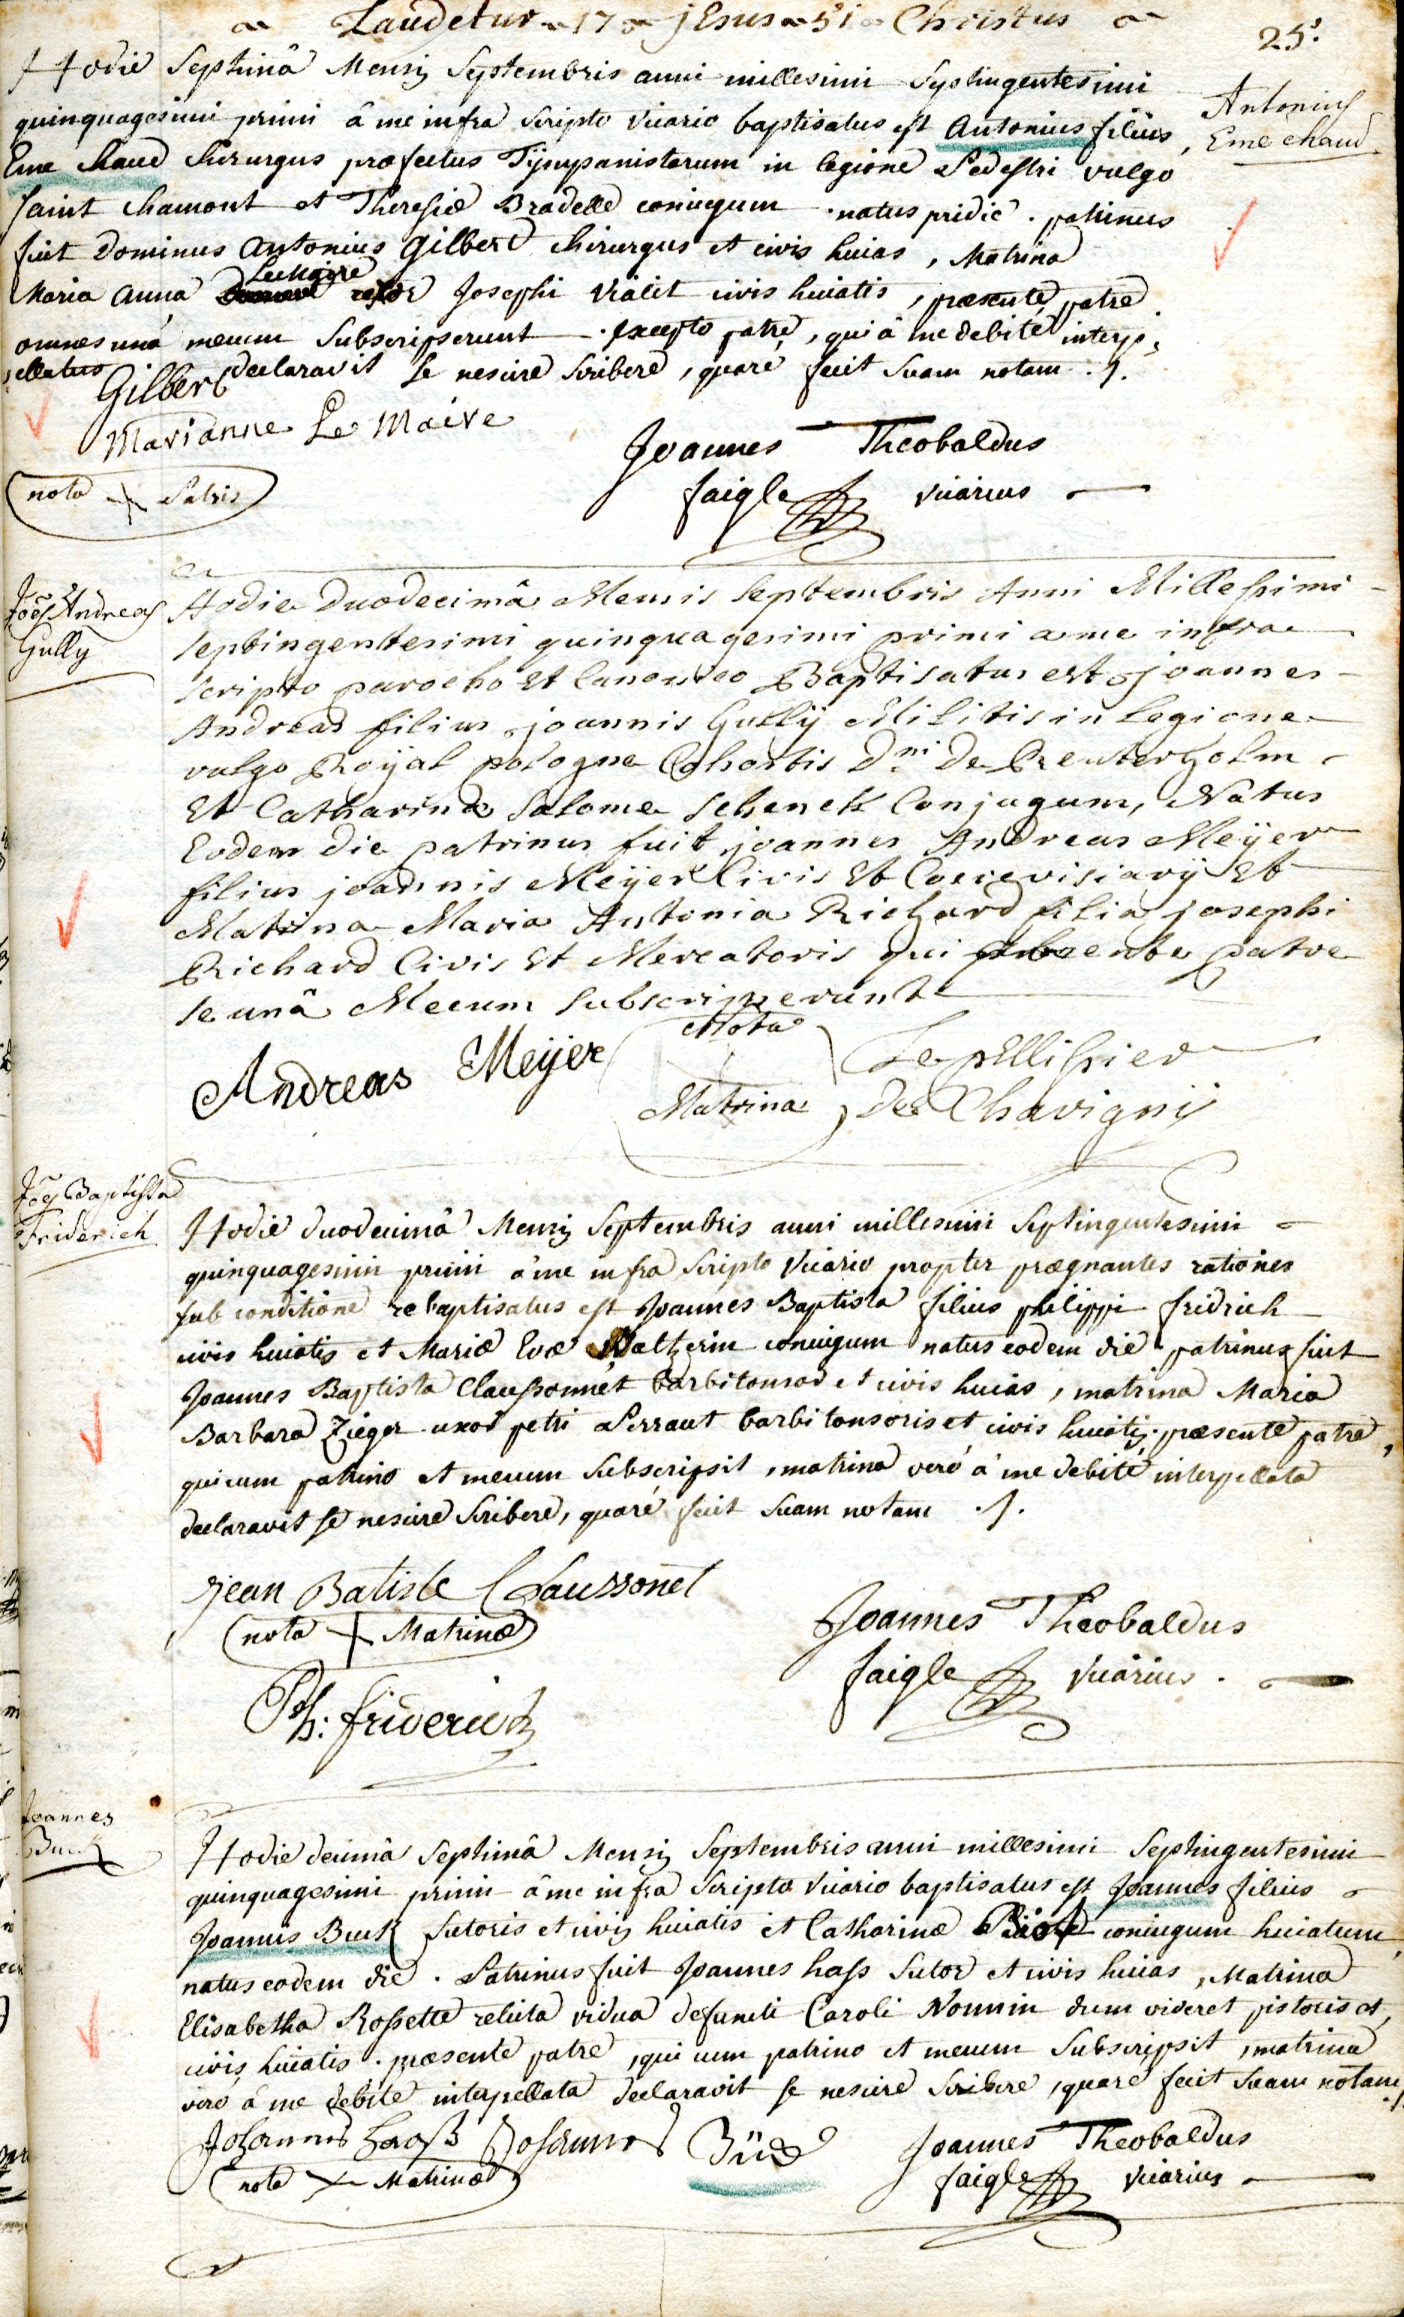 Laudetur 17 jEsus 51 Christus
25.
Hodie Septimâ Mensis Septembris anni millesimi Septingentesimi
quinquagesimi primi â me infra Scripto Vicario baptisatus est Antonius filius
Antonius
Eme chaud
Eme Chaud Chirurgus præfectus Tympanistarum in legione Pedestri vulgo
Saint Chamont et Theresiæ Bradelle coniugum . natus pridie . patrinus
fuit Dominus Antonius Gilbert Chirurgus et civis huias , Matrina
Maria Anna LeMaire uxor Josephi Vialit civis huiatis , præsente patre
omnes unâ mecum Subscripserunt . excepto patre , qui â me debite interp
ellatus declaravit se nescire Scribere , quare fecit Suam notam .
Gilbert
Marianne Le Maire
nota + Patris
Joannes Theobaldus
faigle Vicarius
Joẽs Andreas
Gully
Hodie Duodecimâ Mensis Septembris Anni Millessimi
septingentesimi quinquagesimi primi a me infra
scripto parocho Et Canonico Baptisatus est joannes
Andreas filius joannis Gullÿ Militis in Legione
vulgo Roÿal pologne Cohortis Dni De
Et Catharinæ Salome Schenck Conjugum, Natus
Eodem die patrinus fuit joannes Andreas Meÿer
filius joannis Meÿer Civis Et Cerevisiarÿ Et
Matrina Maria Antonia Richard filia josephi
Richard Civis Et Mercatoris qui patre
se unâ Mecum subscripserunt
Andreas Meijer
Nota
Matrina
Le pEllissier
De Chavignÿ
Joẽs Baptista
Friderich
Hodie duodecimâ Mensis Septembris anni millesimi Septingentesimi
quinquagesimi primi â me infra Scripto Vicario propter prægnantes rationes
sub conditione rebaptisatus est Joannes Baptista filius philippi fridrich
civis huiatis et Mariæ Evæ Waltzerin coniugum natus eodem die patrinus fuit
Joannes Baptista Claussonnét barbitonsor et civis huias , matrina Maria
Barbara Zieger uxor petri Perraut barbitonsoris et civis huiatis . præsente patre ,
qui cum patrino et mecum Subscripsit , matrina veró â me debitè interpellata
declaravit se nescire Scribere, quarè fecit Suam notam .
Jean Batiste Claussonet
nota + Matrinæ
Ph: friderich
Joannes Theobaldus
faigle Vicarius .
Joannes
Buck
Hodie decimâ Septimâ Mensis Septembris anni millesimi Septingentesimi
quinquagesimi primi â me infra Scripto Vicario baptisatus est Joannes filius
Joannis Buck Sutoris et civis huiatis et Catharinæ coniugum huiatum,
natus eodem die . Patrinus fuit Joannes hass Sutor et civis huias , Matrina
Elisabetha Rossette relicta vidua defuncti Caroli Nonnin dum viveret pistoris et
civis huiatis . præsente patre , qui cum patrino et mecum Subscripsit , matrina
vero â me debite interpellata declaravit se nescire Scribere , quare fecit Suam notam
Johannes Haß Johannes Bück
nota + Matrinæ
Joannes Theobaldus
faigle Vicarius